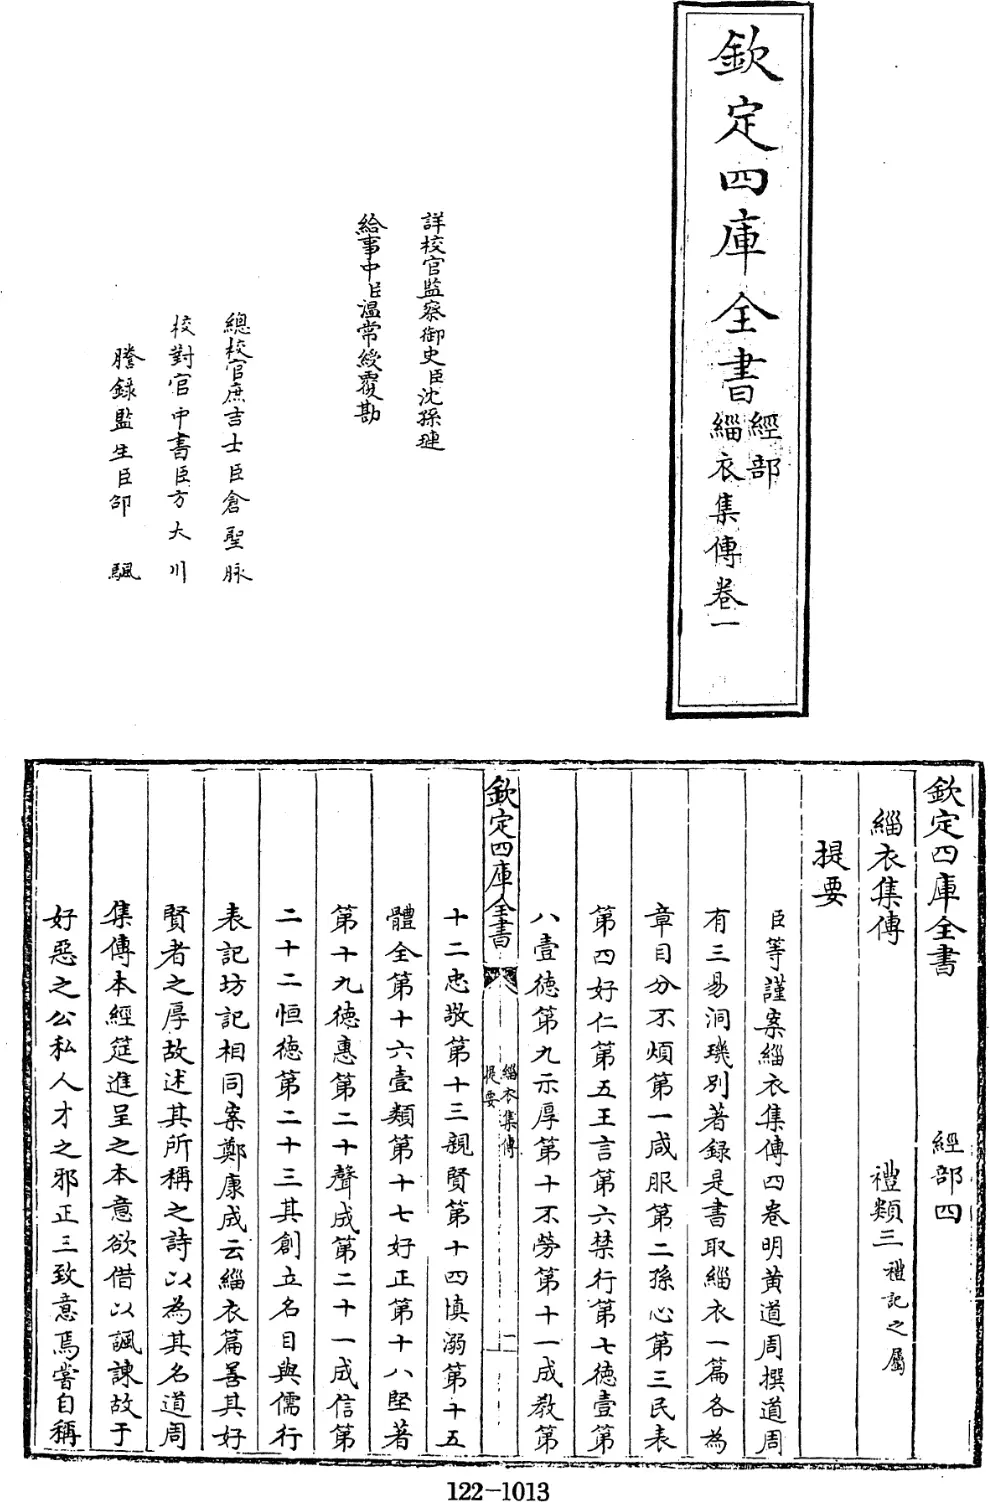 欽定四庫全書
經部
緇衣集傳卷一
詳校官監察御史臣沈孫璉
給事中臣溫常綬覆勘
總校官庶吉士臣倉聖脉
校對官中書臣方大川
謄錄監生臣邵颿
欽定四庫全書 經部四
緇衣集傳 禮類三禮記之屬
提要
臣等謹案緇衣集傳四卷明黃道周撰道周
有三易洞璣別著錄是書取緇衣一篇各為
章目分不煩第一咸服第二孫心第三民表
第四好仁第五王言第六禁行第七德壹第
八壹德第九示厚第十不勞第十一成教第
欽定四庫全書
緇衣集傳
提要
一
十二忠敬第十三親賢第十四慎溺第十五
體全第十六壹類第十七好正第十八堅著
第十九德惠第二十聲成第二十一成信第
二十二恒德第二十三其創立名目與儒行
表記坊記相同案鄭康成云緇衣篇善其好
賢者之厚故述其所稱之詩以為其名道周
集傳本經筵進呈之本意欲借以諷諫故于
好惡之公私人才之邪正三致意焉嘗自稱
122-1013